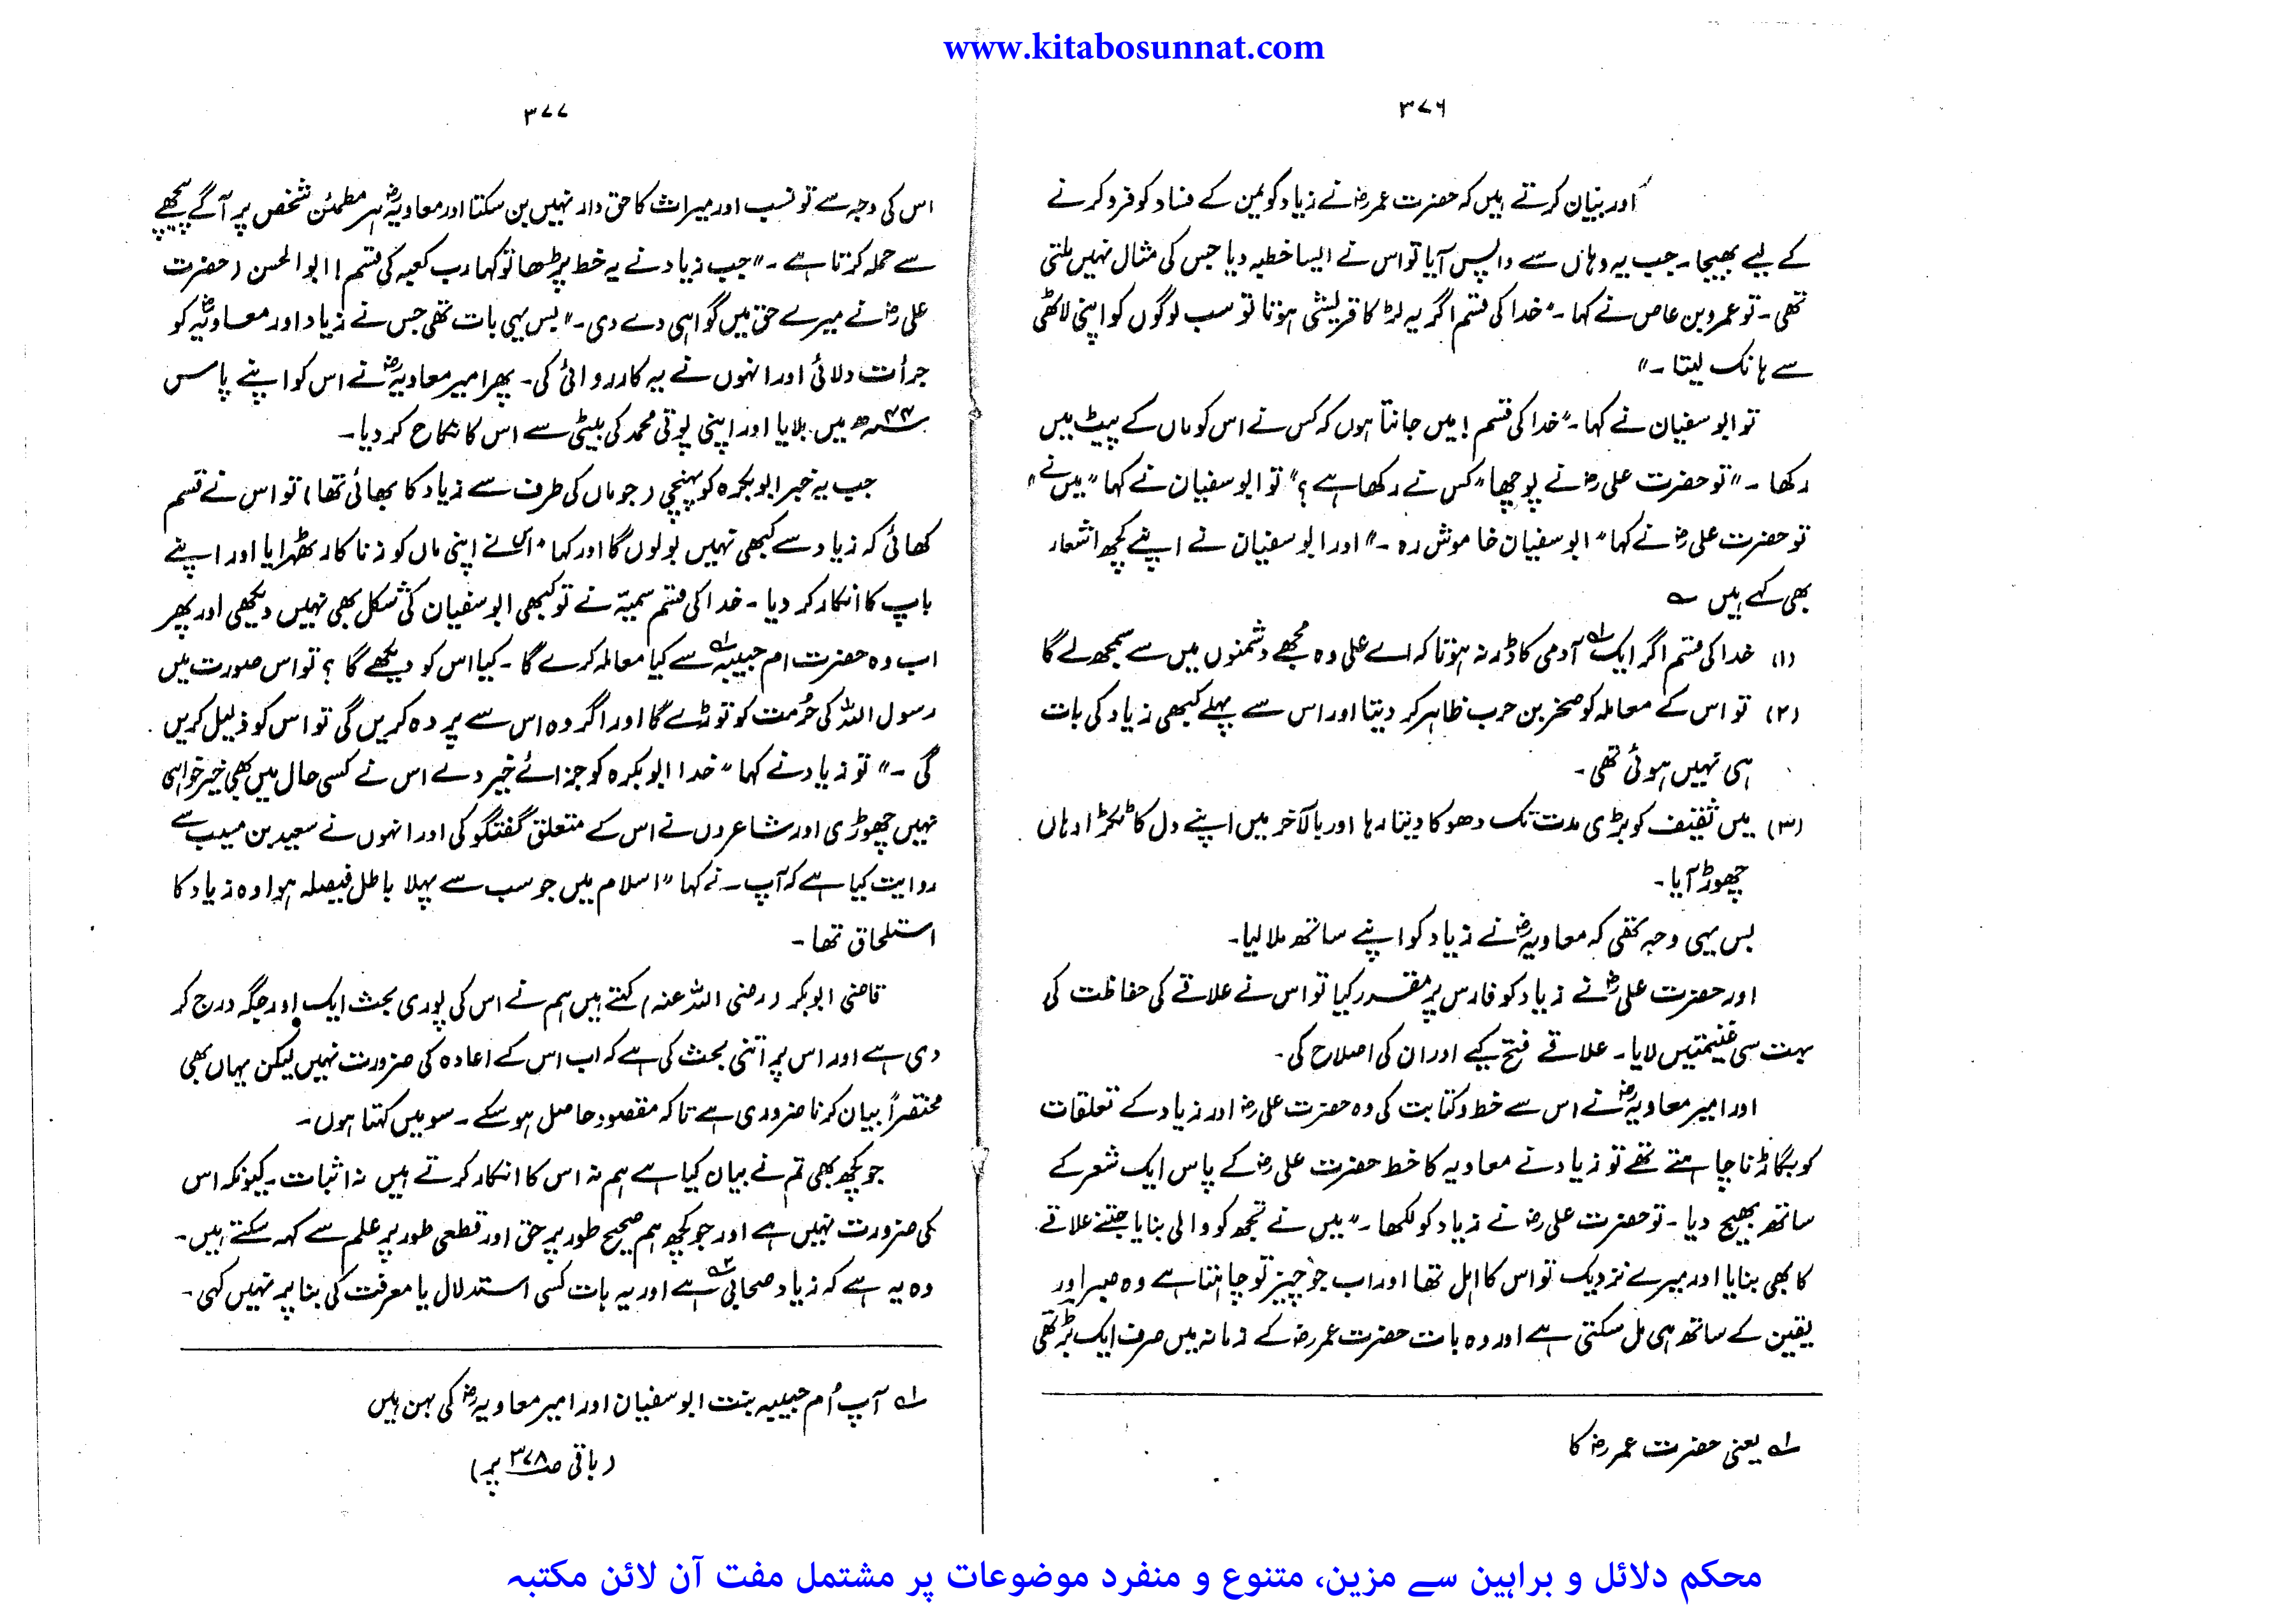 www.kitabosunnat.com
۳۷۶
اور بیان کرتے ہیں کہ حضرت عمرؓ نے زیاد کو یمن کے فساد کو فرو کرنے
کے لیے بھیجا۔ جب یہ وہاں سے واپس آیا تو اس نے ایسا خطبہ دیا جس کی مثال نہیں ملتی
تھی۔ تو عمرو بن عاص نے کہا۔ "خدا کی قسم اگر یہ لڑکا قریشی ہوتا تو سب لوگوں کو اپنی لاٹھی
سے ہانک لیتا۔"
تو ابو سفیان نے کہا۔ "خدا کی قسم! میں جانتا ہوں کہ کس نے اس کو ماں کے پیٹ میں
رکھا۔" تو حضرت علیؓ نے پوچھا "کس نے رکھا ہے؟" تو ابو سفیان نے کہا "میں نے"
تو حضرت علیؓ نے کہا "ابو سفیان خاموش رہ۔" اور ابو سفیان نے اپنے کچھ اشعار
بھی کہے ہیں ؎
(۱) خدا کی قسم اگر ایک لہ آدمی کا ڈر نہ ہوتا کہ اے علی وہ مجھے دشمنوں میں سے سمجھ لے گا
(۲) تو اس کے معاملہ کو صخر بن حرب ظاہر کر دیتا اور اس سے پہلے کبھی زیاد کی بات
ہی نہیں ہوئی تھی۔
(۳) میں ثقیف کو بڑی مدت تک دھوکا دیتا رہا اور بالآخر میں اپنے دل کا ٹکڑا وہاں
چھوڑ آیا۔
بس یہی وجہ تھی کہ معاویہؓ نے زیاد کو اپنے ساتھ ملا لیا۔
اور حضرت علیؓ نے زیاد کو فارس پر مقرر کیا تو اس نے علاقے کی حفاظت کی
بہت سی غنیمتیں لایا۔ علاقے فتح کیے اور ان کی اصلاح کی۔
اور امیر معاویہؓ نے اس سے خط و کتابت کی وہ حضرت علیؓ اور زیاد کے تعلقات
کو بگاڑنا چاہتے تھے تو زیاد نے معاویہ کا خط حضرت علیؓ کے پاس ایک شعر کے
ساتھ بھیج دیا۔ تو حضرت علیؓ نے زیاد کو لکھا۔ "میں نے تجھ کو والی بنایا جتنے علاقے
کا بھی بنایا اور میرے نزدیک تو اس کا اہل تھا اور اب جو چیز تو چاہتا ہے وہ صبر اور
یقین کے ساتھ ہی مل سکتی ہے اور وہ بات حضرت عمرؓ کے زمانہ میں صرف ایک بڑ تھی
لہ یعنی حضرت عمرؓ کا
۳۷۷
اس کی وجہ سے تو نسب اور میراث کا حق دار نہیں بن سکتا اور معاویہؓ ہر مطمئن شخص پر آگے پیچھے
سے حملہ کرتا ہے۔" جب زیاد نے یہ خط پڑھا تو کہا رب کعبہ کی قسم! ابو الحسن (حضرت
علیؓ نے میرے حق میں گواہی دے دی۔" بس یہی بات تھی جس نے زیاد اور معاویہؓ کو
جرأت دلائی اور انہوں نے یہ کارروائی کی۔ پھر امیر معاویہؓ نے اس کو اپنے پاس
۴۴ھ میں بلایا اور اپنی پوتی محمد کی بیٹی سے اس کا نکاح کر دیا۔
جب یہ خبر ابوبکرہ کو پہنچی (جو ماں کی طرف سے زیاد کا بھائی تھا) تو اس نے قسم
کھائی کہ زیاد سے کبھی نہیں بولوں گا اور کہا "اس نے اپنی ماں کو زنا کار ٹھہرایا اور اپنے
باپ کا انکار کر دیا۔ خدا کی قسم سمیّہ نے تو کبھی ابو سفیان کی شکل بھی نہیں دیکھی اور پھر
اب وہ حضرت ام حبیبہ لہ سے کیا معاملہ کرے گا۔ کیا اس کو دیکھے گا؟ تو اس صورت میں
رسول اللہ کی حُرمت کو توڑے گا اور اگر وہ اس سے پردہ کریں گی تو اس کو ذلیل کریں
گی۔" تو زیاد نے کہا "خدا ابوبکرہ کو جزائے خیر دے اس نے کسی حال میں بھی خیر خواہی
نہیں چھوڑی اور شاعروں نے اس کے متعلق گفتگو کی اور انہوں نے سعید بن مسیب سے
روایت کیا ہے کہ آپ نے کہا "اسلام میں جو سب سے پہلا باطل فیصلہ ہوا وہ زیاد کا
استلحاق تھا۔
قاضی ابوبکر (رضی اللہ عنہ) کہتے ہیں ہم نے اس کی پوری بحث ایک اور جگہ درج کر
دی ہے اور اس پر اتنی بحث کی ہے کہ اب اس کے اعادہ کی ضرورت نہیں لیکن یہاں بھی
مختصراً بیان کرنا ضروری ہے تاکہ مقصود حاصل ہو سکے۔ سو میں کہتا ہوں۔
جو کچھ بھی تم نے بیان کیا ہے ہم نہ اس کا انکار کرتے ہیں نہ اثبات۔ کیونکہ اس
کی ضرورت نہیں ہے اور جو کچھ ہم صحیح طور پر حق اور قطعی طور پر علم سے کہہ سکتے ہیں۔
وہ یہ ہے کہ زیاد صحابی ۲ہ ہے اور یہ بات کسی استدلال یا معرفت کی بنا پر نہیں کہی۔
لہ آپ اُم حبیبہ بنت ابو سفیان اور امیر معاویہؓ کی بہن ہیں
(باقی ص ۳۷۸ پر)
محکم دلائل و براہین سے مزین، متنوع و منفرد موضوعات پر مشتمل مفت آن لائن مکتبہ